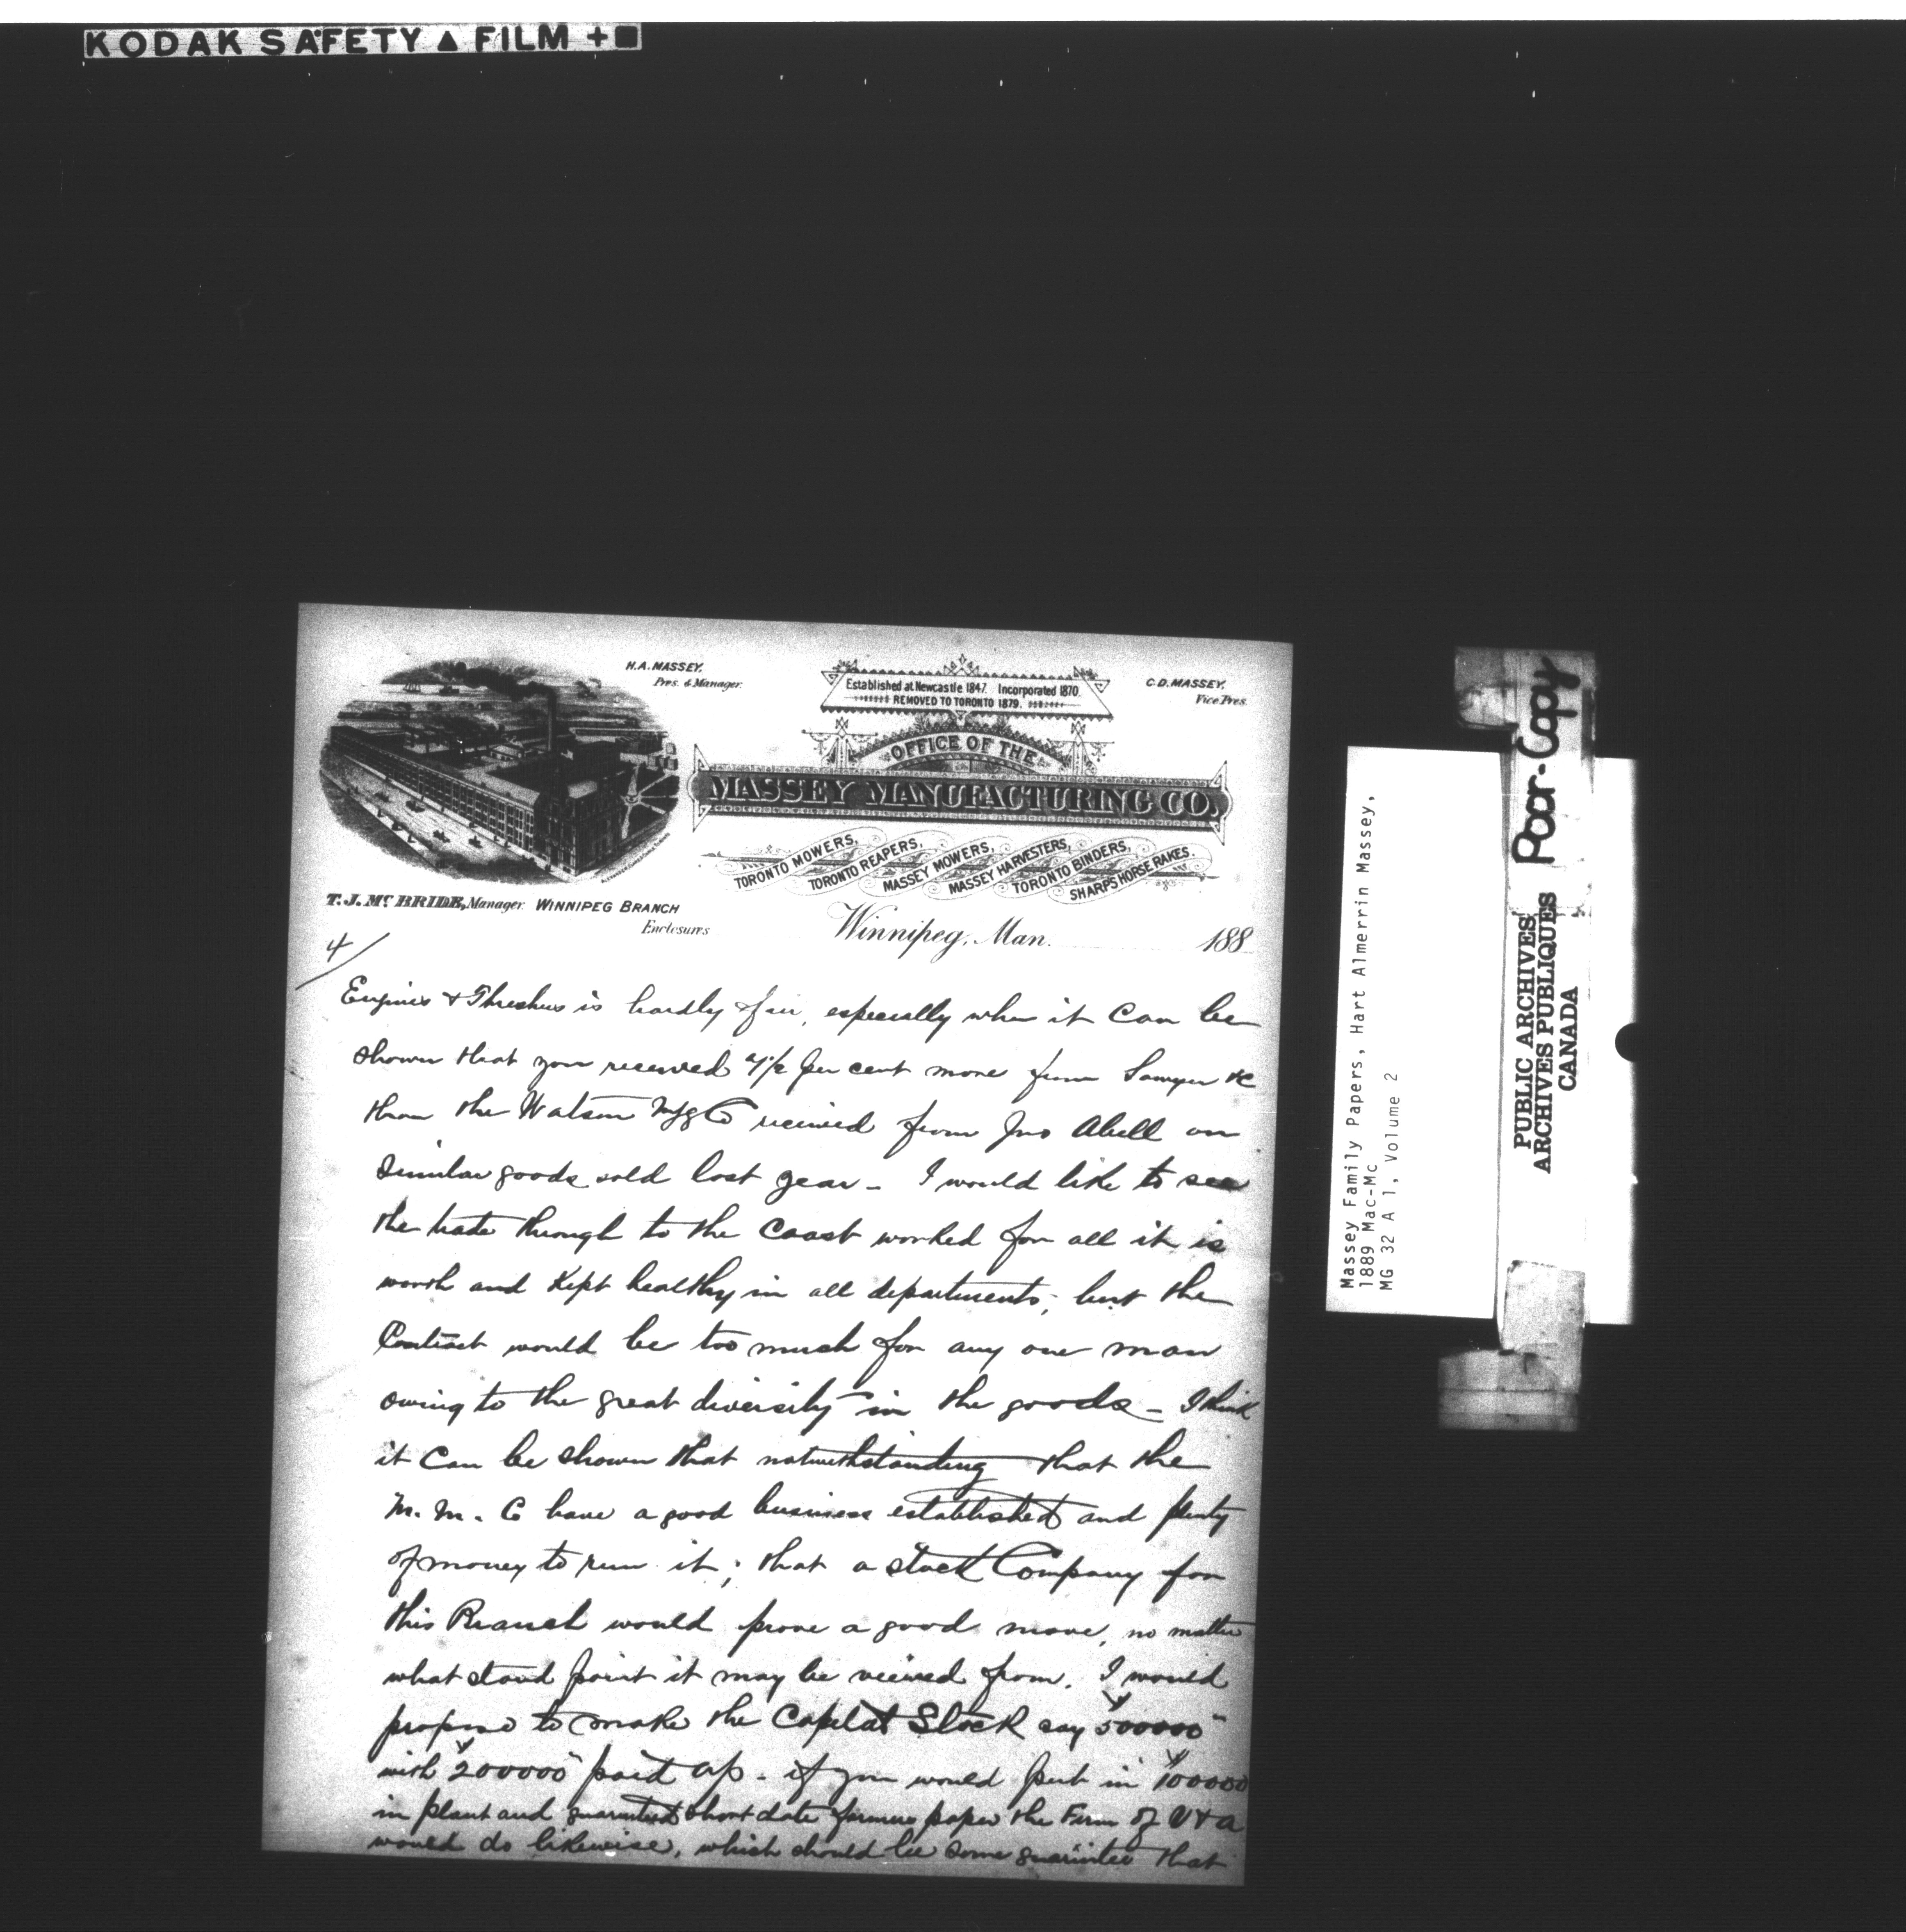 KODAK SAFETY ▲ FILM + ■
H.A. MASSEY,
Pres. & Manager.
Established at Newcastle 1847. Incorporated 1870.
REMOVED TO TORONTO 1879.
C.D. MASSEY,
Vice Pres.
OFFICE OF THE
MASSEY MANUFACTURING CO.
TORONTO MOWERS,
TORONTO REAPERS,
MASSEY MOWERS,
MASSEY HARVESTERS,
TORONTO BINDERS,
SHARPS HORSE RAKES.
T.J. McBRIDE, Manager. WINNIPEG BRANCH
Enclosures
Winnipeg, Man. 188
4/
Engines & Threshers is hardly fair, especially when it can be
shown that you received 7½ per cent more from Sawyer &c
than the Watson Mfg Co received from Jno Abell on
similar goods sold last year – I would like to see
the trade through to the Coast worked for all it is
worth and kept healthy in all departments, but the
Contract would be too much for any one man
owing to the great diversity in the goods – I think
it can be shown that notwithstanding that the
M. M. Co have a good business established and plenty
of money to run it; that a stock Company for
this Branch would prove a good move, no matter
what stand point it may be veiwed from. I would
propose to make the Capital Stock say $500000"
with $200000" paid up – if you would put in $100000
in plant and guaranteed short date farmers paper the Firm of V & A
would do likewise, which should be some guarantee that
Massey Family Papers, Hart Almerrin Massey,
1889 Mac-Mc
MG 32 A 1, Volume 2
Poor-Copy
PUBLIC ARCHIVES
ARCHIVES PUBLIQUES
CANADA